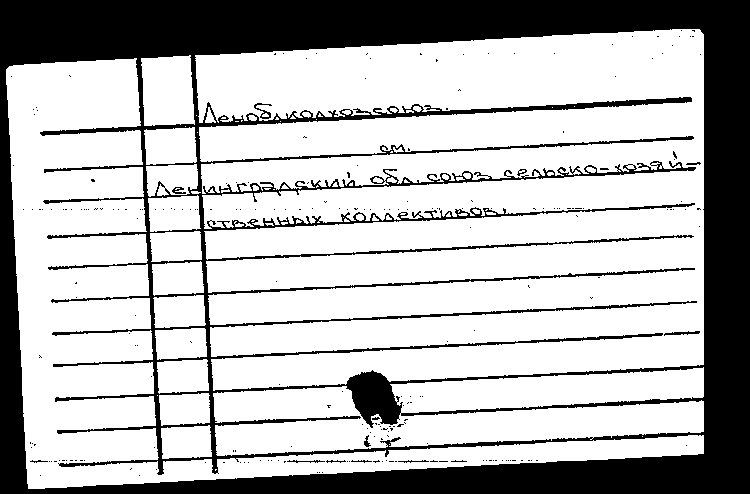 Леноблколхозсоюз.
см.
Ленинградский обл. союз сельско-хозяй-
ственных коллективов.